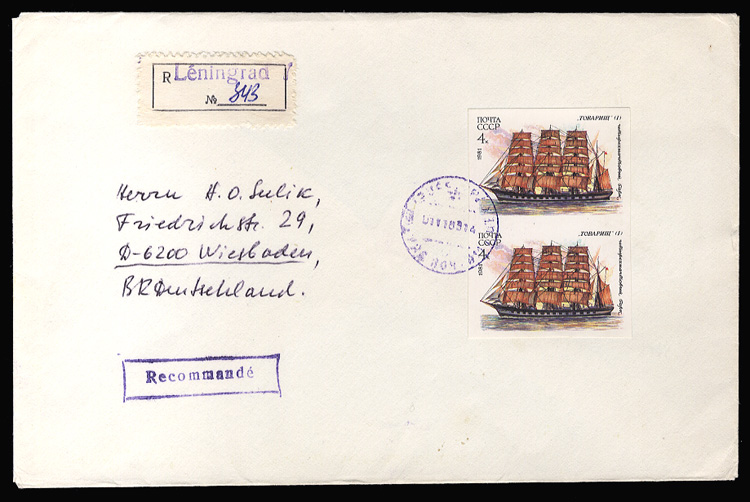 R Léningrad
№ 343
Herrn H.O. Sulik,
Friedrichstr. 29,
D-6200 Wiesbaden,
BRDeutschland.
Recommandé
ПОЧТА
СССР
4к
1981
„ТОВАРИЩ" (I)
ПОЧТА
СССР
4к
1981
„ТОВАРИЩ" (I)